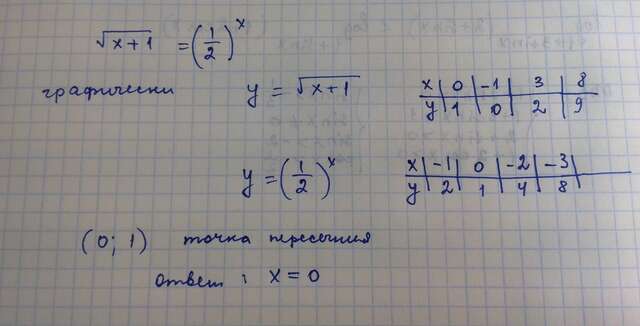 √x+1 = (1/2)^x
графически y = √x+1
x | 0 | -1 | 3 | 8
y | 1 | 0 | 2 | 9
y = (1/2)^x
x | -1 | 0 | -2 | -3 |
y | 2 | 1 | 4 | 8 |
(0; 1) точка пересечния
ответ: x = 0